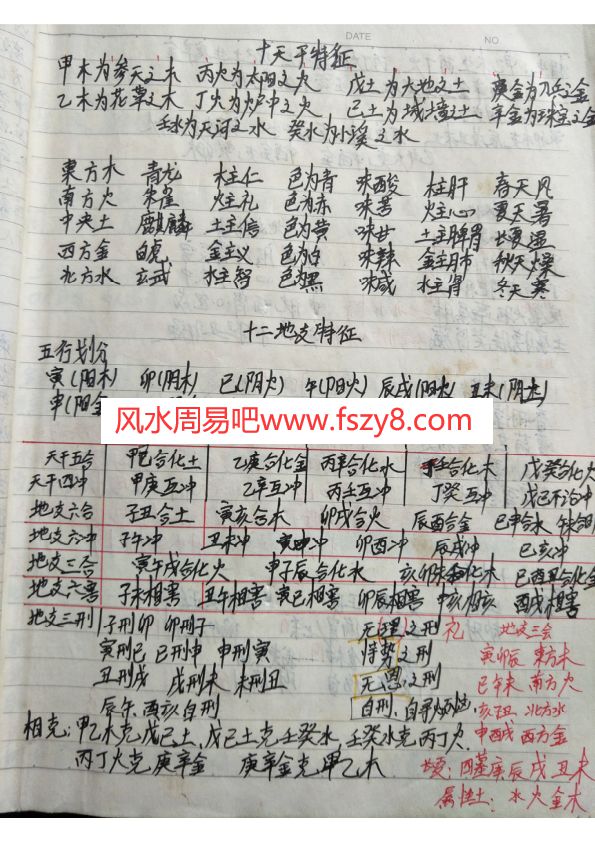 DATE NO
十天干特征
甲木为参天之木 丙火为太阳之火 戊土为大地之土 庚金为之金
乙木为花草之木 丁火为炉中之火 己土为城墙之土 辛金为珠宝之金
壬水为天河之水 癸水为小溪之水
東方木 青龙 木主仁 色为青 味酸 木主肝 春天风
南方火 朱雀 火主礼 色为赤 味苦 火主心 夏天暑
中央土 麒麟 土主信 色为黄 味甘 土主脾胃 长夏湿
西方金 白虎 金主义 色为白 味辣 金主肺 秋天燥
北方水 玄武 水主智 色为黑 味咸 水主肾 冬天寒
十二地支特征
五行划分
寅(阳木) 卯(阴木) 巳(阴火) 午(阳火) 辰戌(阳) 丑未(阴土)
申(阳金
风水周易吧www.fszy8.com
天干五合 甲己合化土 乙庚合化金 丙辛合化水 丁壬合化木 戊癸合化火
天干四冲 甲庚互冲 乙辛互冲 丙壬互冲 丁癸互冲 戊己不冲
地支六合 子丑合土 寅亥合木 卯戌合火 辰酉合金 巳申合水 午未合
地支六冲 子午冲 丑未冲 寅申冲 卯酉冲 辰戌冲 巳亥冲
地支三合 寅午戌合化火 申子辰合化水 亥卯未合化木 巳酉丑合化金
地支六害 子未相害 丑午相害 寅巳相害 卯辰相害 申亥相害 酉戌相害
地支三刑 子刑卯 卯刑子 无理之刑 礼 地支三会
寅刑巳 巳刑申 申刑寅 恃势之刑 寅卯辰 東方木
丑刑戌 戌刑未 未刑丑 无恩之刑 巳午未 南方火
辰午酉亥自刑 自刑、自寻烦恼 亥子丑 北方水
相克：甲乙木克戊己土、戊己土克壬癸水 壬癸水克丙丁火 申酉戌 西方金
丙丁火克庚辛金 庚辛金克甲乙木 四墓库辰戌丑未
属性土：水火金木